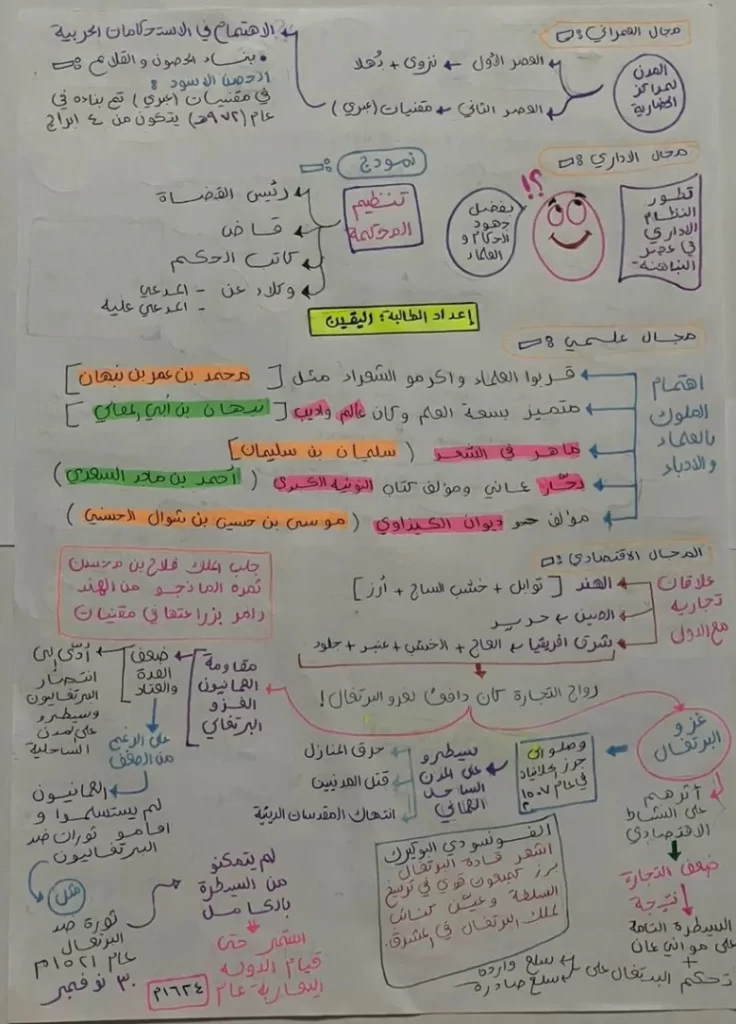 مجال العمراني:
المدن
لمراكز
الحضارية
العصر الأول ← نزوى + بُهلا
العصر الثاني ← مقنيات (عبري)
الاهتمام في الاستحكامات الحربية
• بناء الحصون والقلاع:
الحصن الاسود:
في مقنيات (عبري) تم بناءه في
عام (٩٧٢هـ) يتكون من ٤ ابراج
مجال الاداري:
تطور
النظام
الاداري
في عصر
النباهنة
؟!
بفضل
جهود
الحكام و
العلماء
نموذج:
تنظيم
المحكمة
رئيس القضاة
قاض
كاتب الحكم
وكلاء عن - المدعي
- المدعي عليه
إعداد الطالبة: اليقين
مجال علمي:
اهتمام
الملوك
بالعلماء
والادباء
قربوا العلماء واكرمو الشعراء مثل [محمد بن عمر بن نبهان]
متميز بسعة العلم وكان عالم واديب [نبهان بن أبي المعالي]
ماهر في الشعر (سليمان بن سليمان]
بحّار عماني ومؤلف كتاب النونية الكبرى (أحمد بن ماجد السعدي)
مؤلف ديوان الكيذاوي (موسى بن حسين بن شوال الحسيني)
المجال الاقتصادي:
علاقات
تجارية
مع الدول
الهند [توابل + خشب الساج + أرز]
الصين ← حرير
شرق افريقيا ← العاج + الخشب + عنبر + جلود
جلب الملك فلاح بن محسن
ثمرة المانجو من الهند
وامر بزراعتها في مقنيات
رواج التجارة كان دافعًا لغزو البرتغال!
غزو
البرتغال
وصلو الى
جزر الحلانيات
في عام ١٥٠٧
م
سيطرو
على المدن
الساحل
العماني
حرق المنازل
قتل المدنيين
انتهاك المقدسات الدينية
مقاومة
العمانيون
الغزو
البرتغالي
ضعف
العدة
والعتاد
أدى إلى
انتصار
البرتغاليون
وسيطرو
على المدن
الساحلية
على الرغم
من الضعف
العمانيون
لم يستسلموا و
اقامو ثورات ضد
البرتغاليون
مثل
ثورة ضد
البرتغال
عام ١٥٢١م
٣٠ نوفمبر
لم يتمكنو
من السيطرة
بالكامل
استمر حتى
قيام الدوله
اليعاربة عام
١٦٢٤م
الفونسو دي البوكيرك
اشهر قادة البرتغال
برز كمبعوث قوي في ترسيخ
السلطة وعيّن كنائب
لملك البرتغال في المشرق.
أثرهم
على النشاط
الاقتصادي
ضعف التجارة
نتيجة
السيطرة التامة
على موانئ عمان
+
تحكم البرتغال على ← سلع وارده
← سلع صادرة